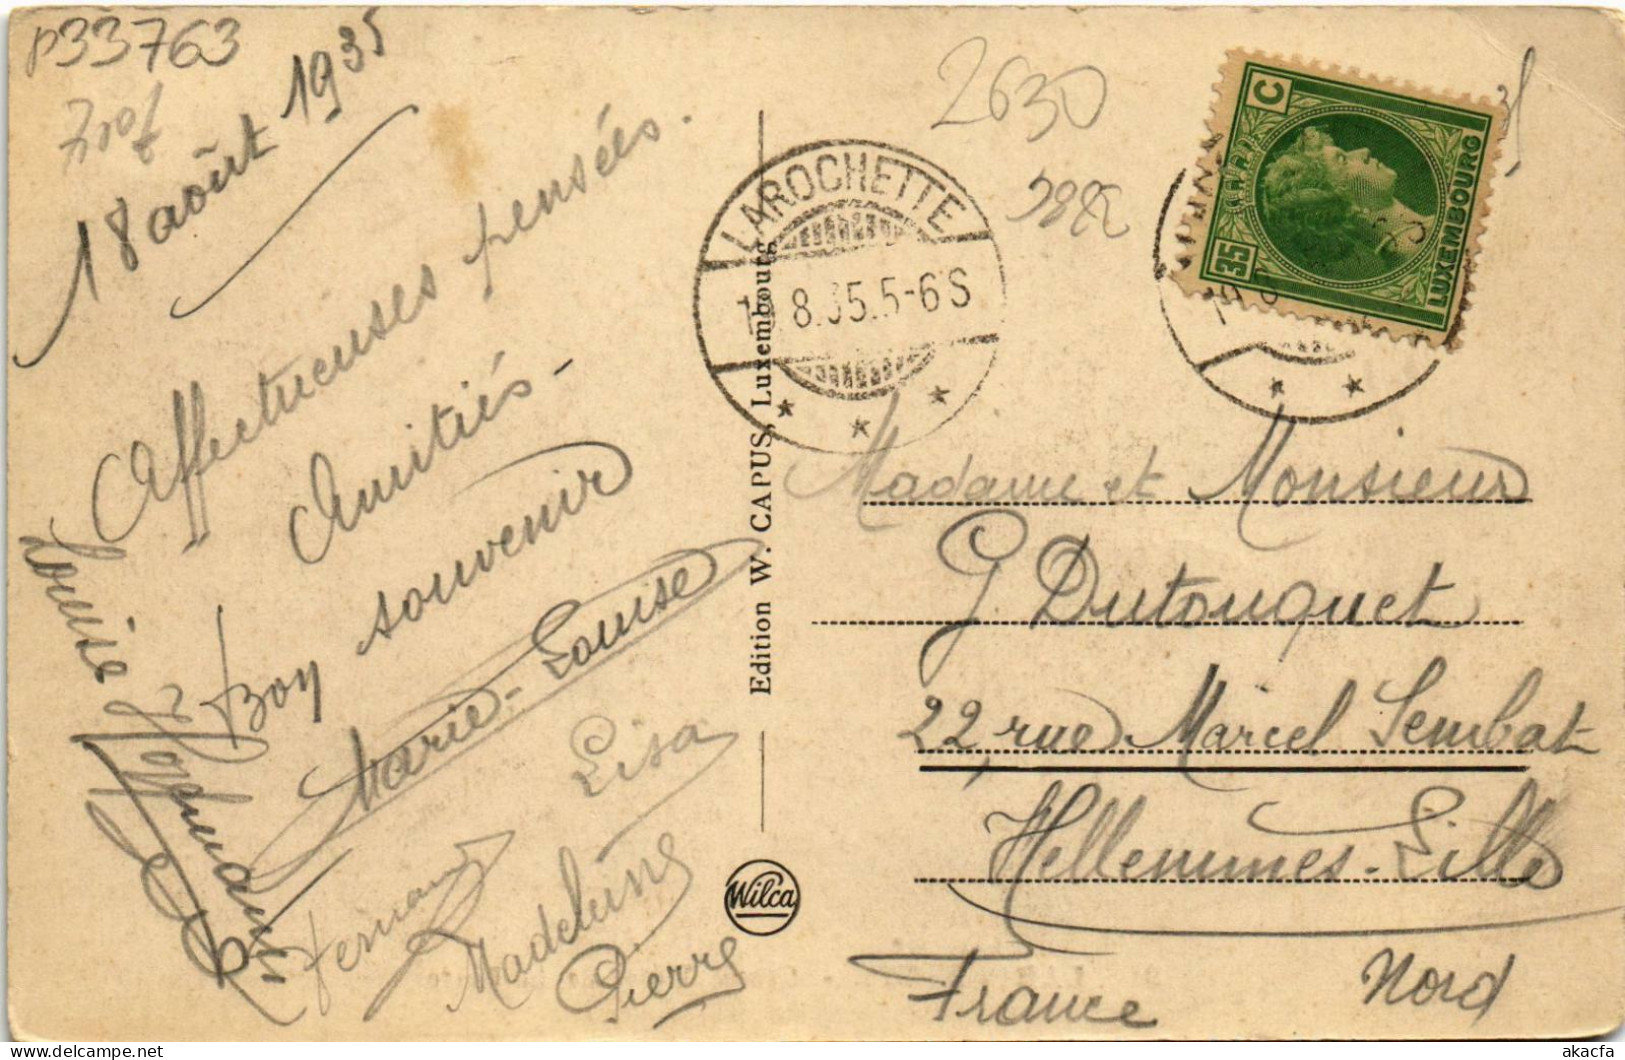 p33763
18 août 1935
Affectueuses pensées.
Amitiés -
Bon souvenir
Marie-Louise
Louise
Lisa
Fernand
Madeleine
Pierre
Edition W. CAPUS, Luxembourg
Wilca
2630
LAROCHETTE
8.35.5-6S
35 C
LUXEMBOURG
35
Madame et Monsieur
G. Dutouquet
22, rue Marcel Sembat
Hellemmes-Lille
Nord
France
akacfa